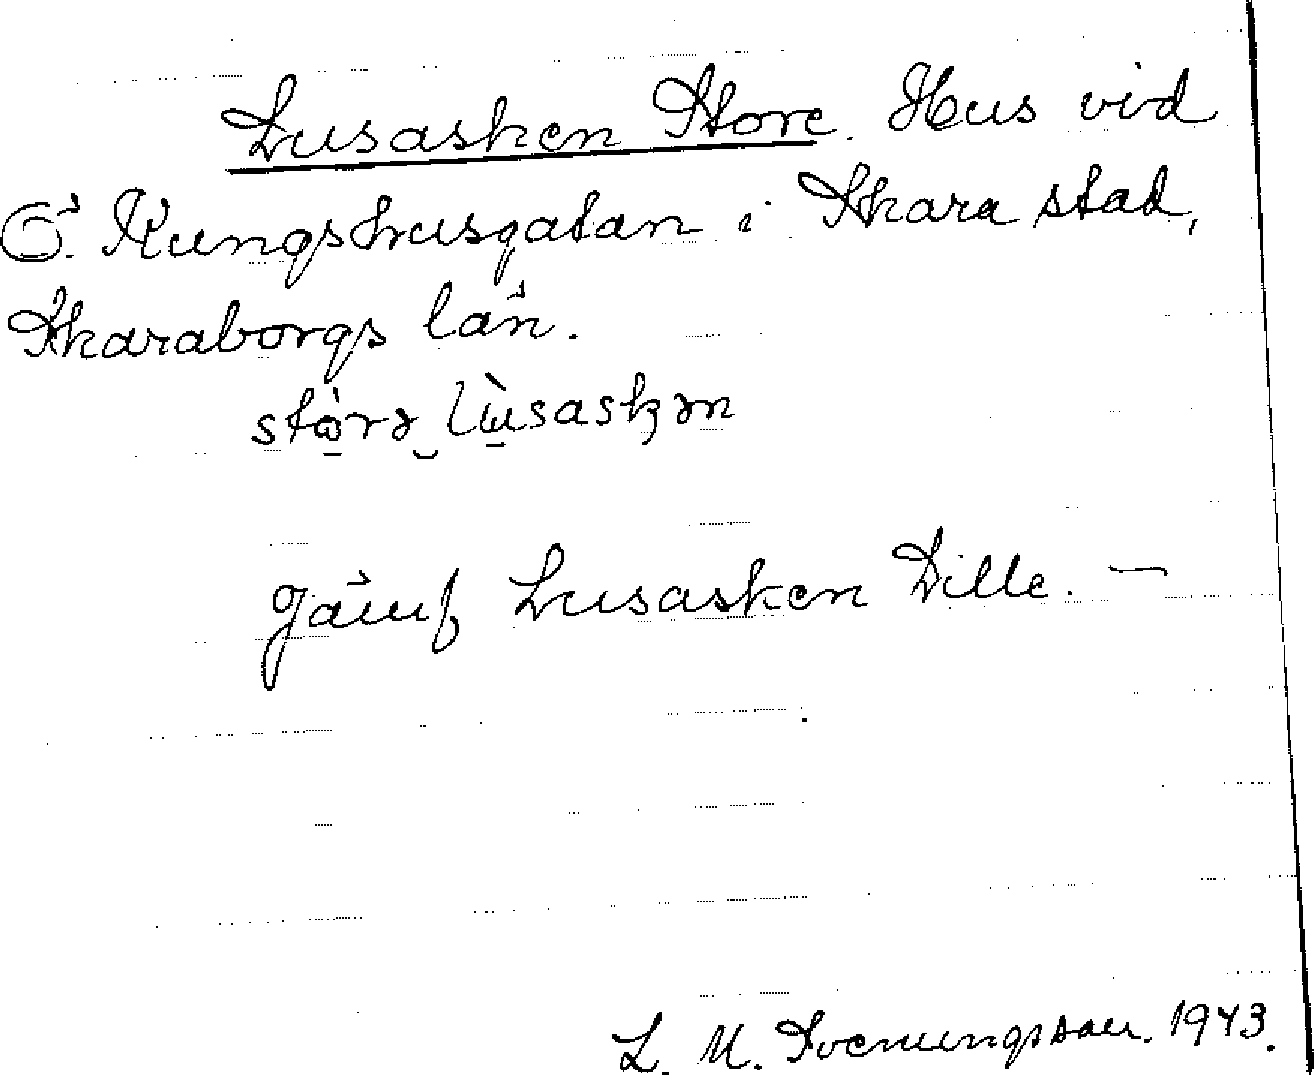 Lusasken Store. Hus vid
Ö. Kungshusgatan i Skara stad,
Skaraborgs län.
stò̱rə‿lù̱saskən
Jämf Lusasken Lille. —
L. M. Svenungsson. 1943.